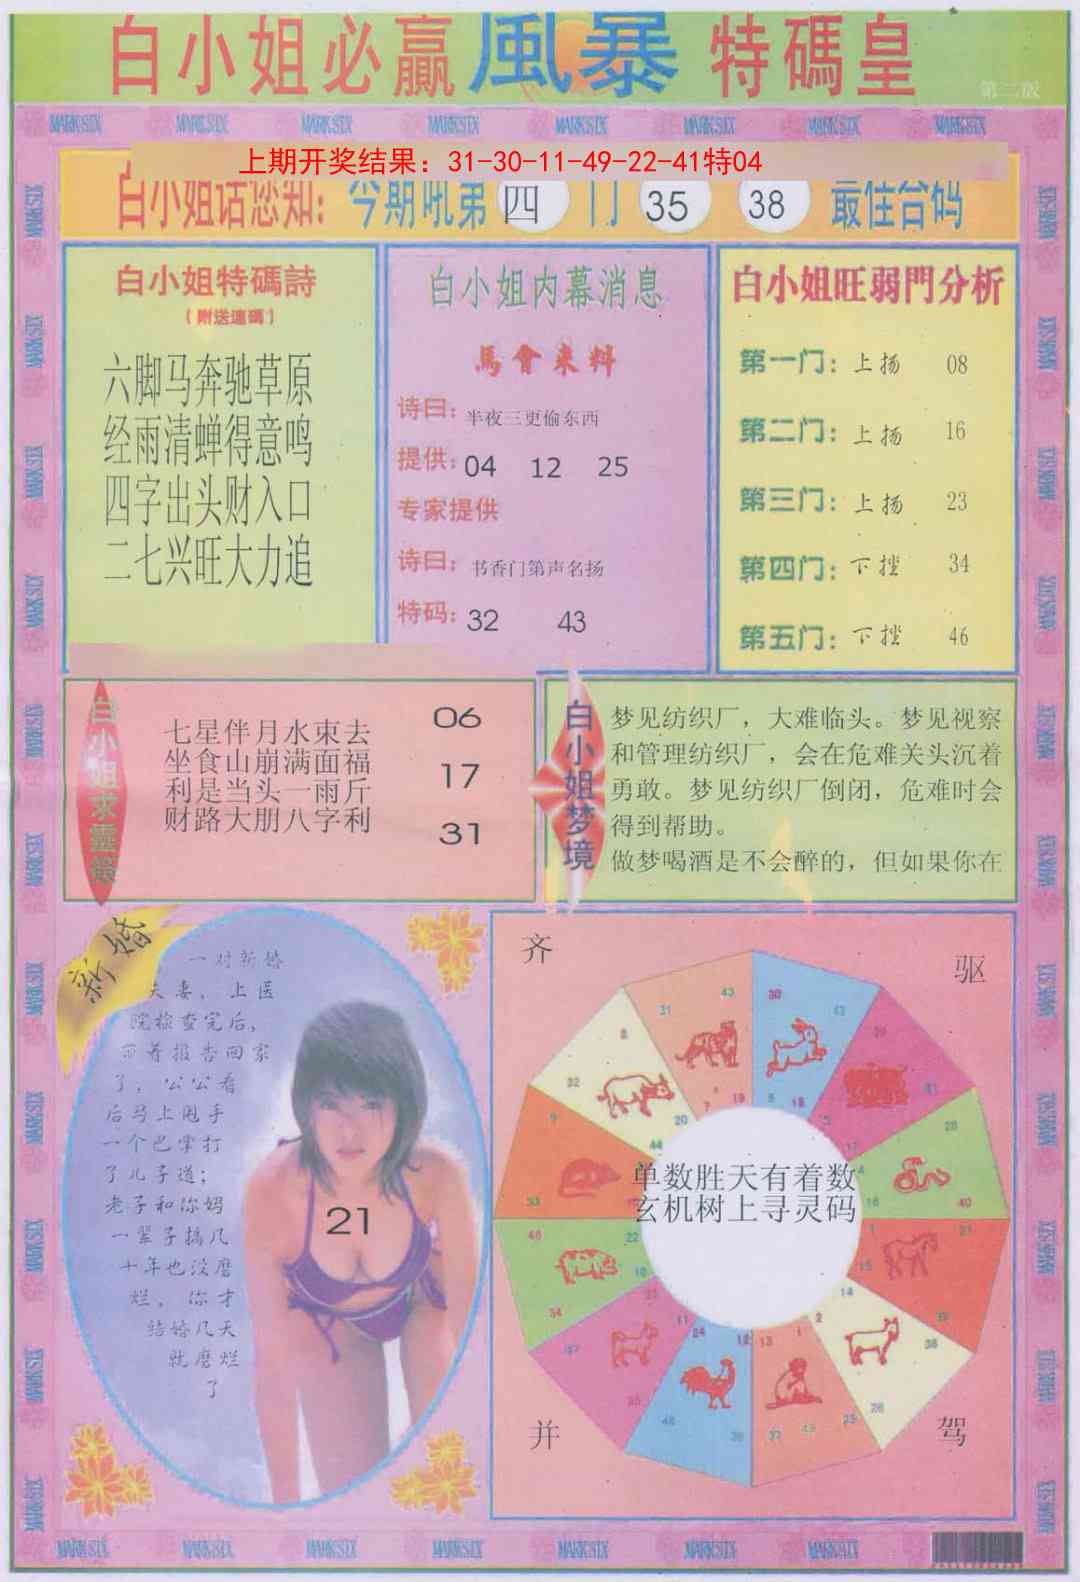 白小姐必赢風暴特碼皇
第二版
MARK SIX MARK SIX MARK SIX MARK SIX MARK SIX MARK SIX MARK SIX MARK SIX
上期开奖结果：31-30-11-49-22-41特04
白小姐话您知：今期吼第四门 35 38 最佳合码
白小姐特碼詩
（附送連碼）
六脚马奔驰草原
经雨清蝉得意鸣
四字出头财入口
二七兴旺大力追
白小姐内幕消息
馬會来料
诗曰：半夜三更偷东西
提供：04 12 25
专家提供
诗曰：书香门第声名扬
特码：32 43
白小姐旺弱門分析
第一门：上扬 08
第二门：上扬 16
第三门：上扬 23
第四门：下挫 34
第五门：下挫 46
白小姐求靈籤
七星伴月水束去
坐食山崩满面福
利是当头一雨斤
财路大朋八字利
06
17
31
白小姐梦境
梦见纺织厂，大难临头。梦见视察
和管理纺织厂，会在危难关头沉着
勇敢。梦见纺织厂倒闭，危难时会
得到帮助。
做梦喝酒是不会醉的，但如果你在
新婚
一对新婚
夫妻，上医
院检查完后，
而着报告回家
了，公公看
后马上甩手
一个巴掌打
了儿子道；
老子和你妈
一辈子搞几
十年也没磨
烂，你才
结婚几天
就磨烂
了
21
齐
驱
单数胜天有着数
玄机树上寻灵码
并
驾
MARK SIX MARK SIX MARK SIX MARK SIX MARK SIX MARK SIX MARK SIX